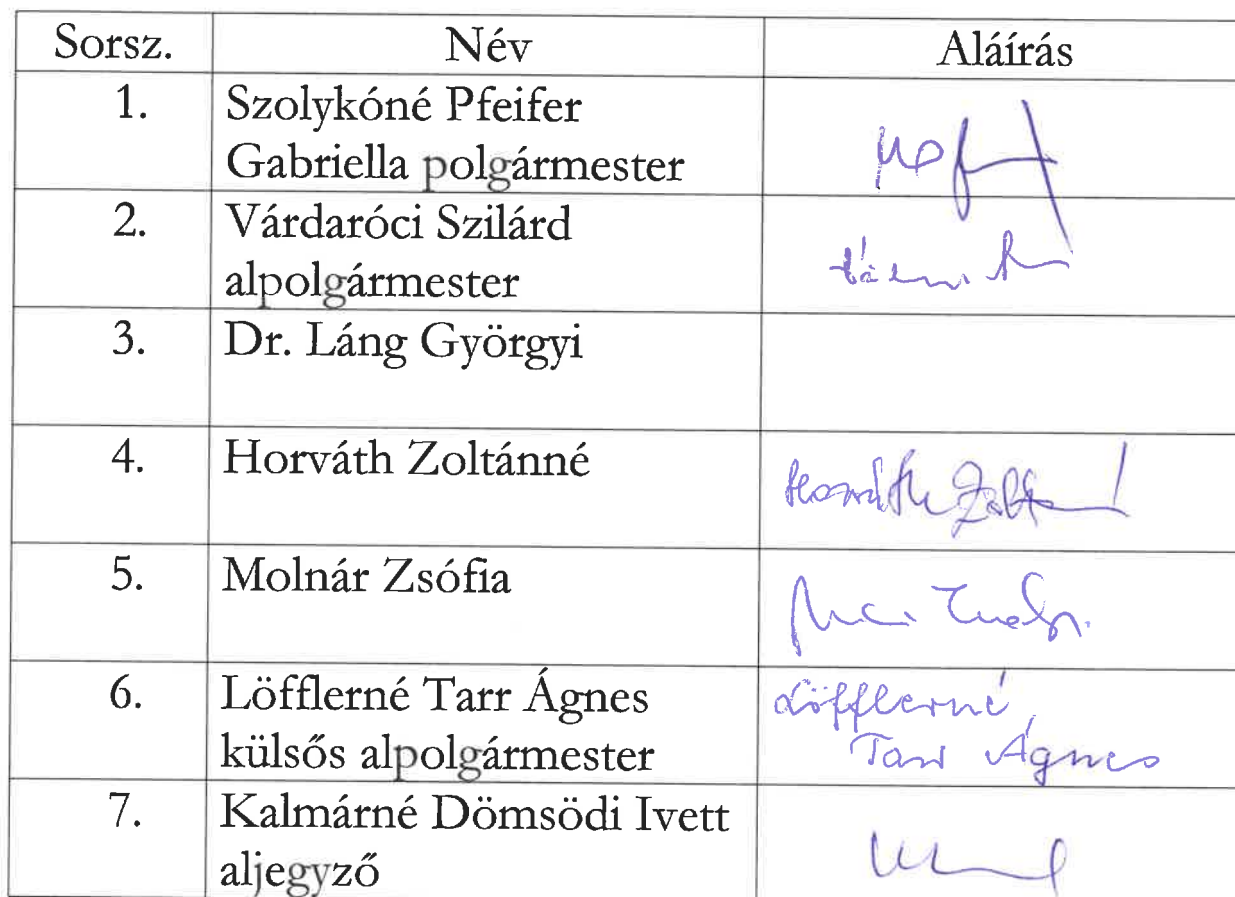 Sorsz. Név Aláírás
1. Szolykóné Pfeifer
Gabriella polgármester
2. Várdaróci Szilárd
alpolgármester
3. Dr. Láng Györgyi
4. Horváth Zoltánné
Horváth Zoltánné
5. Molnár Zsófia
6. Löfflerné Tarr Ágnes
külsős alpolgármester
Löfflerné
Tarr Ágnes
7. Kalmárné Dömsödi Ivett
aljegyző